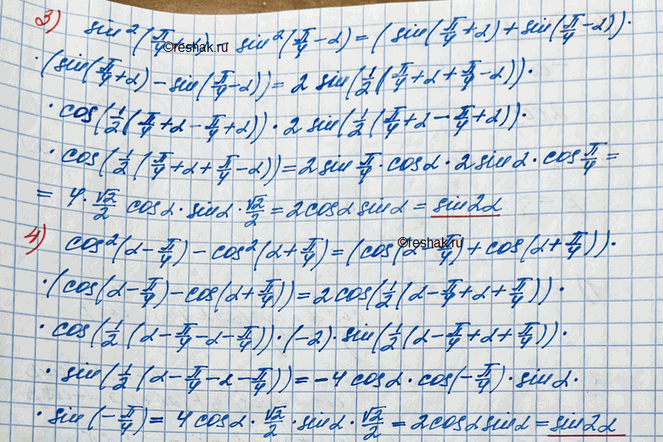 3) sin²(π/4+α) - sin²(π/4-α) = (sin(π/4+α) + sin(π/4-α))·
·(sin(π/4+α) - sin(π/4-α)) = 2 sin(1/2(π/4+α+π/4-α))·
·cos(1/2(π/4+α-π/4+α))·2 sin(1/2(π/4+α-π/4+α))·
·cos(1/2(π/4+α+π/4-α)) = 2 sin π/4·cosα·2 sinα·cos π/4 =
= 4·√2/2 cosα·sinα·√2/2 = 2cosα sinα = sin2α
4) cos²(α-π/4) - cos²(α+π/4) = (cos(α-π/4) + cos(α+π/4))·
·(cos(α-π/4) - cos(α+π/4)) = 2cos(1/2(α-π/4+α+π/4))·
·cos(1/2(α-π/4-α-π/4))·(-2)·sin(1/2(α-π/4+α+π/4))·
·sin(1/2(α-π/4-α-π/4)) = -4 cosα·cos(-π/4)·sinα·
·sin(-π/4) = 4 cosα·√2/2·sinα·√2/2 = 2cosα sinα = sin2α
©reshak.ru
©reshak.ru